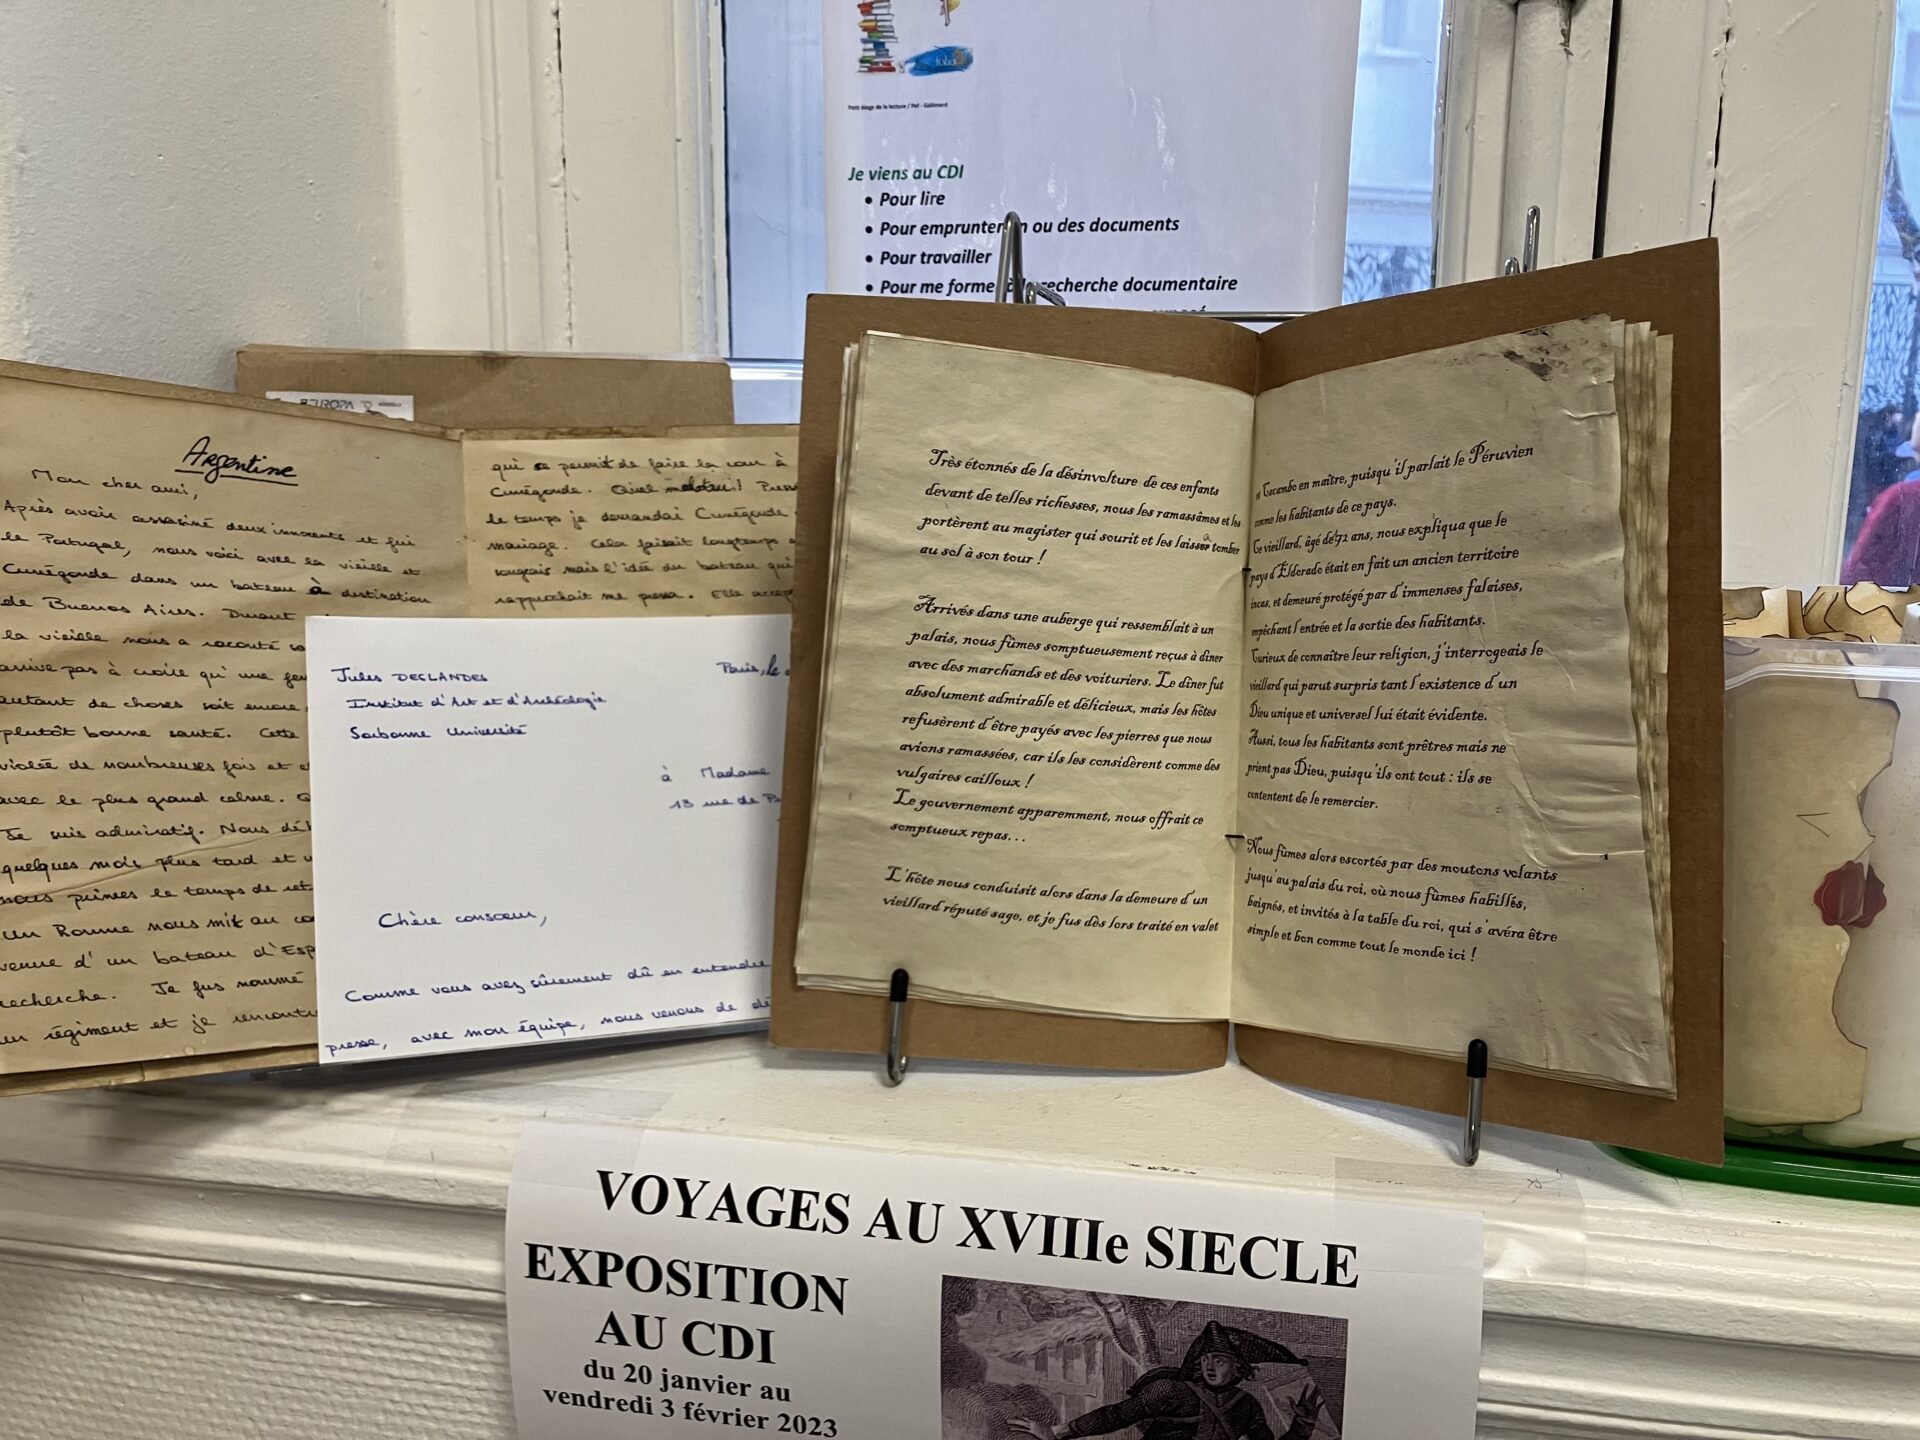 folio
Petit éloge de la lecture / Pef - Gallimard
Je viens au CDI
• Pour lire
• Pour emprunter ou des documents
• Pour travailler
• Pour me forme à la recherche documentaire
EUROPA
Argentine
Mon cher ami,
Après avoir assasiné deux innocents et fui
le Portugal, nous voici avec la vieille et
Cunégonde dans un bateau à destination
de Buenos Aires. Durant
la vieille nous a raconté
arrive pas à croire qu'une
autant de choses soit encore
plutôt bonne santé. Cette
violée de nombreuses fois et
avec le plus grand calme.
Je suis admiratif. Nous
quelques mois plus tard et
nous prîmes le temps de
un homme nous mit au
venue d'un bateau d'Esp
recherche. Je fus nommé
un régiment et je rencontr
qui se permit de faire la cour à
Cunégonde. Quel
le temps je demandai Cunégonde
mariage. Cela faisait longtemps
songeais mais l'idée du bateau qui
rapprochait me pressa. Elle
Jules DESLANDES
Paris, le
Institut d'Art et d'Archéologie
Sorbonne Université
à Madame
13 rue de
Chère consœur,
Comme vous avez sûrement dû en entendre
presse, avec mon équipe, nous venons de
Très étonnés de la désinvolture de ces enfants
devant de telles richesses, nous les ramassâmes et les
portèrent au magister qui sourit et les laissa tomber
au sol à son tour !
Arrivés dans une auberge qui ressemblait à un
palais, nous fûmes somptueusement reçus à dîner
avec des marchands et des voituriers. Le dîner fut
absolument admirable et délicieux, mais les hôtes
refusèrent d'être payés avec les pierres que nous
avions ramassées, car ils les considèrent comme des
vulgaires cailloux !
Le gouvernement apparemment, nous offrait ce
somptueux repas...
L'hôte nous conduisit alors dans la demeure d'un
vieillard réputé sage, et je fus dès lors traité en valet
et Cacambo en maître, puisqu'il parlait le Péruvien
comme les habitants de ce pays.
Ce vieillard, âgé de 172 ans, nous expliqua que le
pays d'Eldorado était en fait un ancien territoire
incas, et demeuré protégé par d'immenses falaises,
empêchant l'entrée et la sortie des habitants.
Curieux de connaître leur religion, j'interrogeais le
vieillard qui parut surpris tant l'existence d'un
Dieu unique et universel lui était évidente.
Aussi, tous les habitants sont prêtres mais ne
prient pas Dieu, puisqu'ils ont tout : ils se
contentent de le remercier.
Nous fûmes alors escortés par des moutons volants
jusqu'au palais du roi, où nous fûmes habillés,
baignés, et invités à la table du roi, qui s'avéra être
simple et bon comme tout le monde ici !
VOYAGES AU XVIIIe SIECLE
EXPOSITION
AU CDI
du 20 janvier au
vendredi 3 février 2023